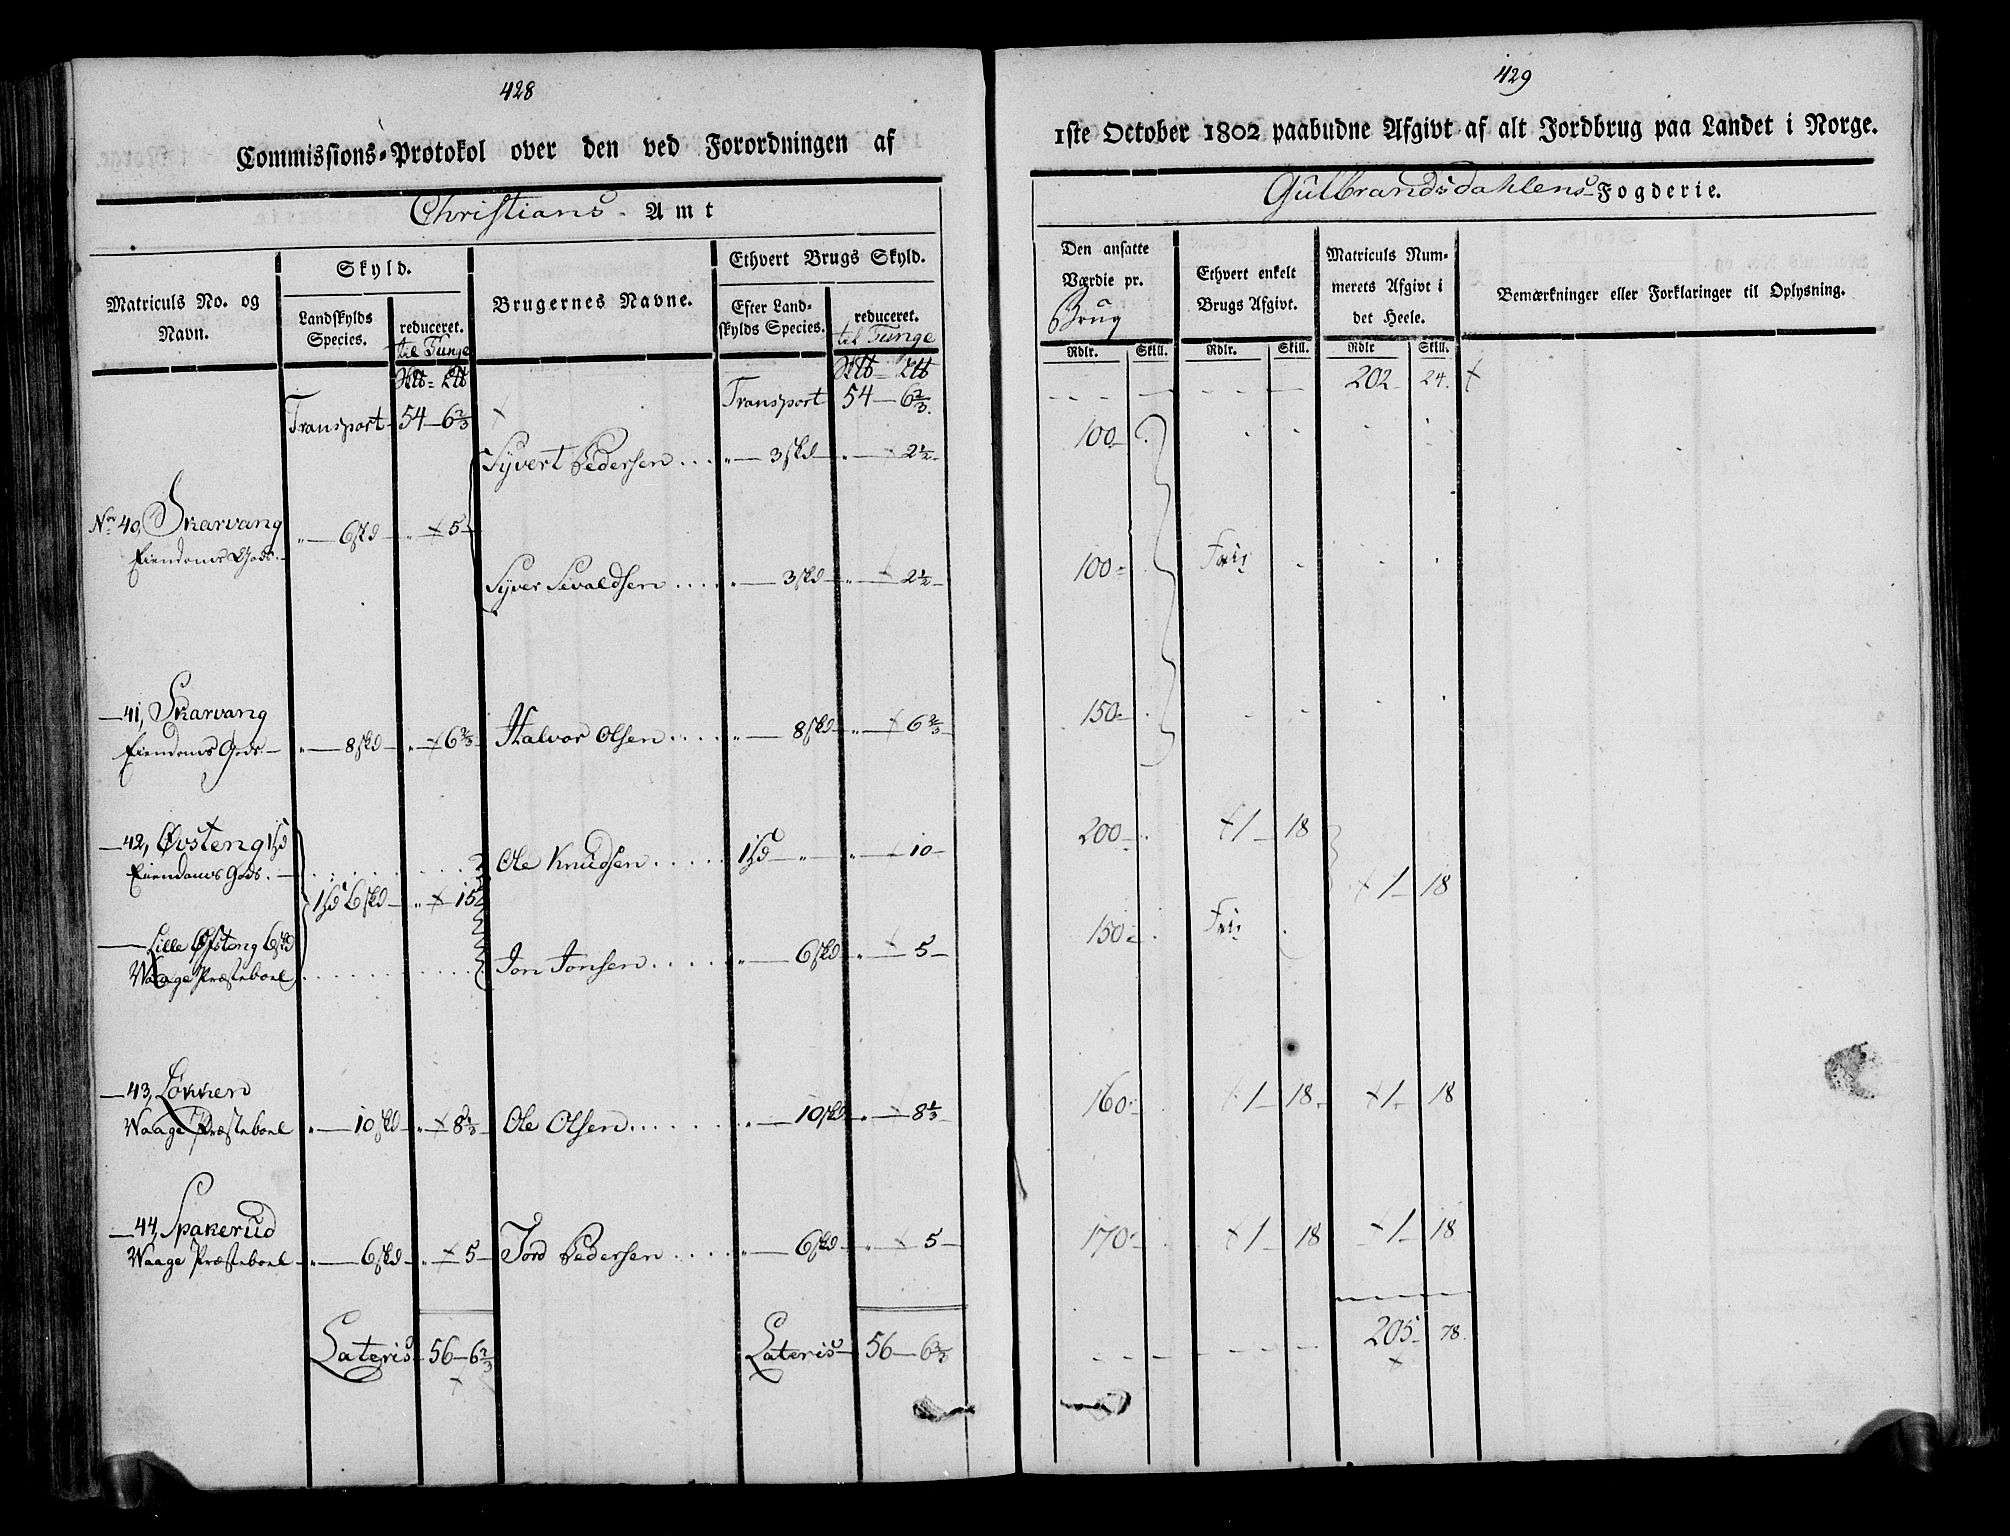 428
Commissions-Protokol over den ved Forordningen af
Christians Amt
Matriculs No. og Navn.
Skyld.
Landskylds Species.
reduceret. til Tunge
Brugernes Navne.
Ethvert Brugs Skyld.
Efter Landskylds Species.
reduceret. til Tunge
Transport 54 — 6 2/3 Transport 54 — 6 2/3.
Syvert Pedersen . . . " — 3 skd — " — 2 1/2 —
No 40, Skarvang " — 6 skd — " — 5 —
Eiendoms Gods. —
Syver Sivaldsen . . . . " — 3 skd — " — 2 1/2 —
— 41, Skarvang
Eiendoms Gods — " — 8 skd — " — 6 2/3 Halvor Olsen . . . . " — 8 skd — " — 6 2/3 —
— 42, Øvsteng 1 hd
Eiendoms Gods. — Ole Knudsen . . . . . 1 hd — " — " — 10 —
1 hd 6 skd — " — 15
— Lille Øfsteng 6 skd
Waage Præsteboel Jon Jonsen . . . . . " — 6 skd — " — 5 —
— 43, Løkken
Waage Præsteboel " — 10 skd — " — 8 1/3 — Ole Olsen . . . . . . " — 10 skd — " — 8 1/3 —
— 44, Spakerud
Waage Præsteboel — " — 6 skd — " — 5 — Tord Pedersen . . . . " — 6 skd — " — 5 —
Lateris 56 — 6 2/3 Lateris — 56 — 6 2/3
429
1ste October 1802 paabudne Afgivt af alt Jordbrug paa Landet i Norge.
Gulbrandsdahlens Fogderie.
Den ansatte Værdie pr. Brug
Ethvert enkelt Brugs Afgivt.
Matriculs Nummerets Afgivt i det Heele.
Bemærkninger eller Forklaringer til Oplysning.
Rdlr. Skill. Rdlr. Skill. Rdlr Skill.
202 — 24.
100 —
100 — Frii
150 —
200 — 1 — 18
1 — 18
150 — Frii
160 — 1 — 18. 1 — 18
170 — 1 — 18 1 — 18
205 — 78.